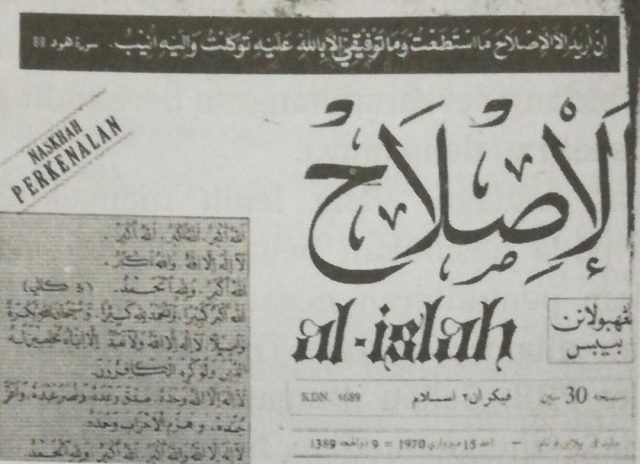 إِنْ أُرِيدُ إِلَّا الْإِصْلَاحَ مَا اسْتَطَعْتُ وَمَا تَوْفِيقِي إِلَّا بِاللَّهِ عَلَيْهِ تَوَكَّلْتُ وَإِلَيْهِ أُنِيبُ. سورة هود ٨٨
NASKHAH
PERKENALAN
الْإِصْلَاحُ
al-islah
بيبس
KDN. 4689
فيكيران٢ اسلام
30 سين
احد 15 1970 = 9 1389
اللهُ أَكْبَرُ. اللهُ أَكْبَرُ. اللهُ أَكْبَرُ.
لَا إِلٰهَ إِلَّا اللهُ وَاللهُ أَكْبَرُ.
اللهُ أَكْبَرُ وَلِلّٰهِ الْحَمْدُ. (٤ كالي)
اللهُ أَكْبَرُ كَبِيرًا وَالْحَمْدُ لِلّٰهِ كَثِيرًا وَسُبْحَانَ اللهِ بُكْرَةً
وَأَصِيلًا لَا إِلٰهَ إِلَّا اللهُ وَلَا نَعْبُدُ إِلَّا إِيَّاهُ مُخْلِصِينَ لَهُ
الدِّينَ وَلَوْ كَرِهَ الْكَافِرُونَ.
لَا إِلٰهَ إِلَّا اللهُ وَحْدَهُ صَدَقَ وَعْدَهُ وَنَصَرَ عَبْدَهُ وَأَعَزَّ
جُنْدَهُ وَهَزَمَ الْأَحْزَابَ وَحْدَهُ.
لَا إِلٰهَ إِلَّا اللهُ وَاللهُ أَكْبَرُ. اللهُ أَكْبَرُ وَلِلّٰهِ الْحَمْدُ